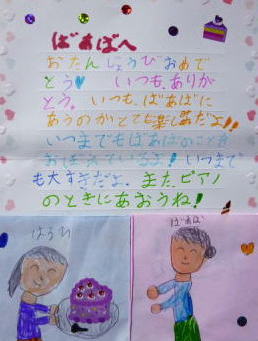 ばあばへ
おたんじょうび おめで
とう♥ いつも、ありが
とう。 いつも、ばあばに
あうのがとても楽しみだよ!!
いつまでもばあばのことを
おぼえているよ! いつまで
も大すきだよ。また、ピアノ
のときにあおうね!
ばあば